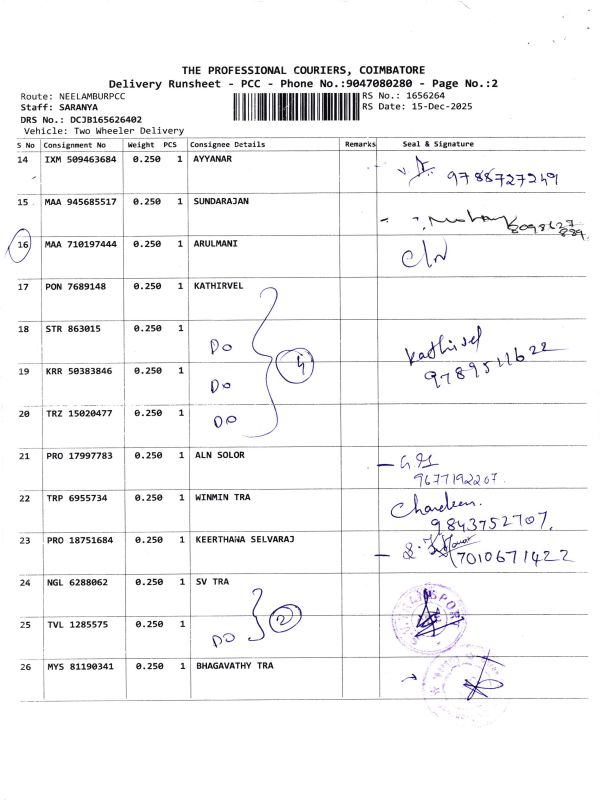 THE PROFESSIONAL COURIERS, COIMBATORE
Delivery Runsheet - PCC - Phone No.:9047080280 - Page No.:2
Route: NEELAMBURPCC
RS No.: 1656264
Staff: SARANYA
RS Date: 15-Dec-2025
DRS No.: DCJB165626402
Vehicle: Two Wheeler Delivery
S No Consignment No Weight PCS Consignee Details Remarks Seal & Signature
14 IXM 509463684 0.250 1 AYYANAR
9788727249
15 MAA 945685517 0.250 1 SUNDARAJAN
16 MAA 710197444 0.250 1 ARULMANI
17 PON 7689148 0.250 1 KATHIRVEL
18 STR 863015 0.250 1
DO
Kathirvel
9789511622
4
19 KRR 50383846 0.250 1
DO
20 TRZ 15020477 0.250 1
DO
21 PRO 17997783 0.250 1 ALN SOLOR
9677192207
22 TRP 6955734 0.250 1 WINMIN TRA
9843752707
23 PRO 18751684 0.250 1 KEERTHANA SELVARAJ
7010671422
24 NGL 6288062 0.250 1 SV TRA
2
25 TVL 1285575 0.250 1
DO
26 MYS 81190341 0.250 1 BHAGAVATHY TRA